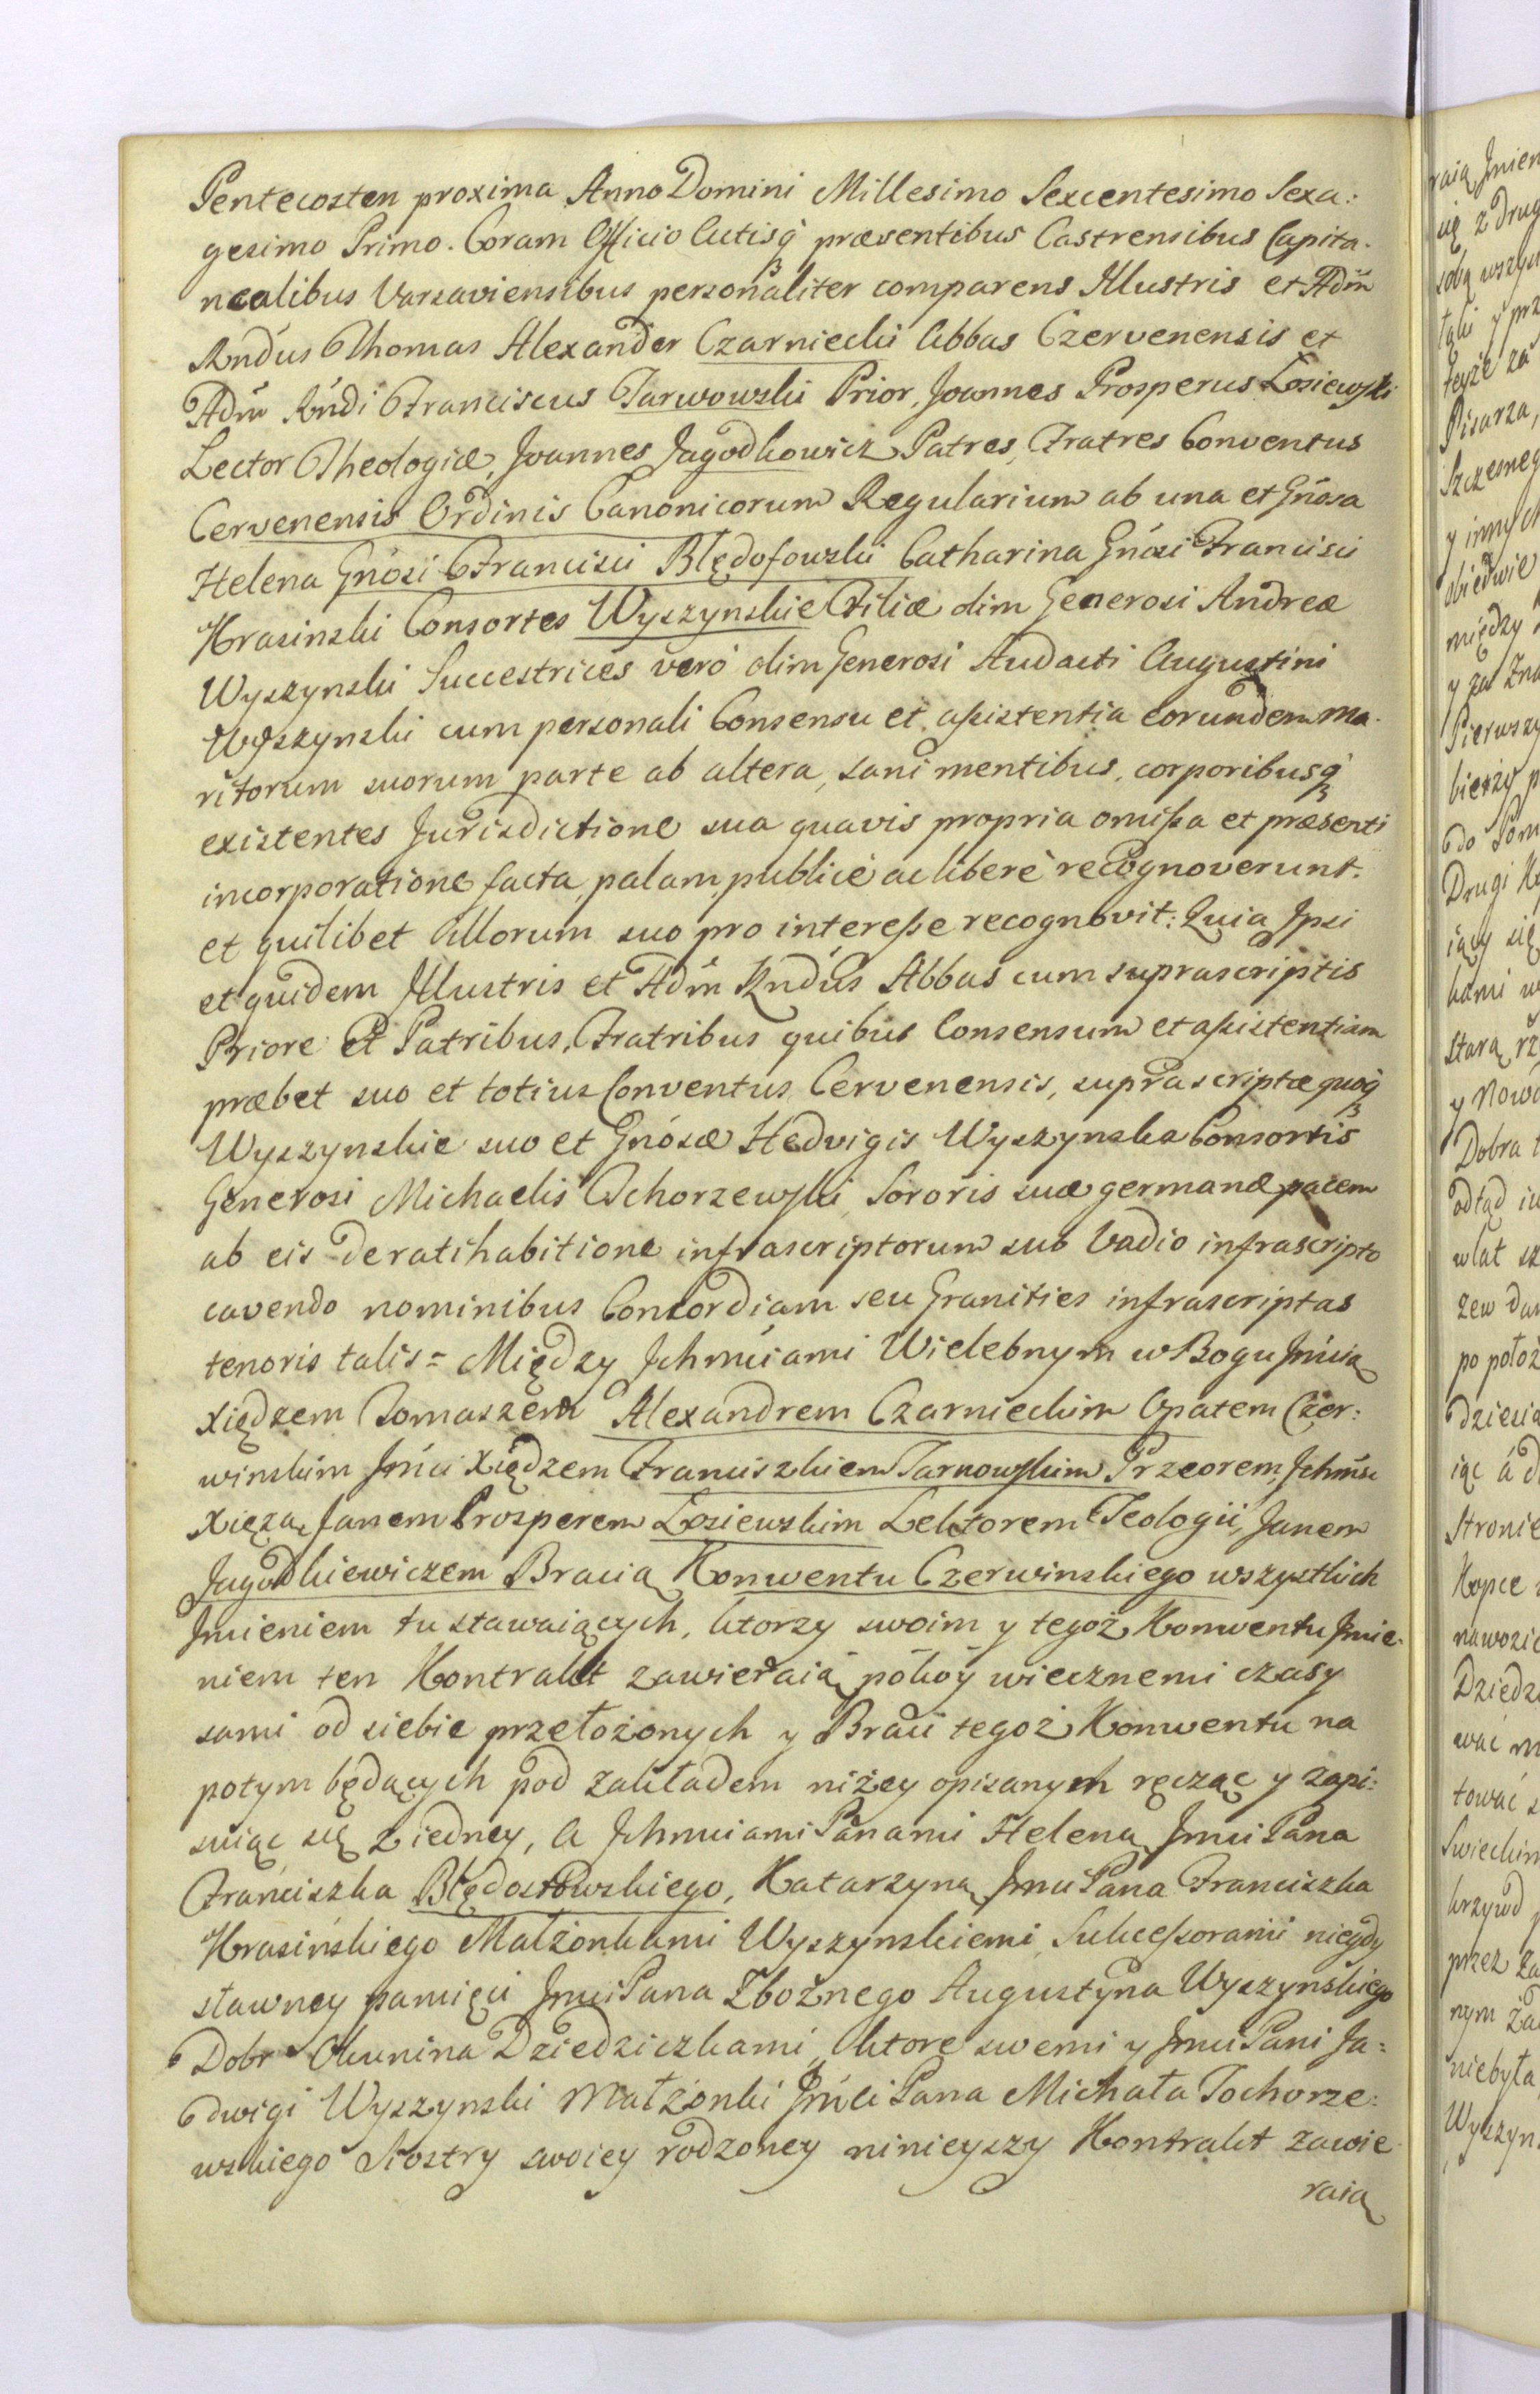 Pentecosten proxima Anno Domini Millesimo Sexcentesimo Sexa:
gesimo Primo. Coram Officio Actisq́ præsentibus Castrensibus Capita-
nealibus Varsaviensibus personaliter comparens Illustris et Adm̃
Rndus Thomas Alexander Czarniecki Abbas Czervenensis et
Adm̃ Rńdi Franciscus Tarwowski Prior, Joannes Prosperus Łosiewski
Lector Theologiæ, Joannes Jagodkowicz Patres, Fratres Conventus
Cervenensis Ordinis Canonicorum Regularium ab una et Gńosa
Helena Gnósi Francisci Błędosowski Catharina Gnósi Francisci
Krasinski Consortes Wyszynskie Filiæ olim Generosi Andreæ
Wyszynski Succestrices veró olim Generosi Audacti Augustini
Wyszynski cum personali Consensu et aſsistentia eorundem ma-
ritorum suorum parte ab altera, sani mentibus, corporibusq́
existentes Jurisdictione sua quavis propria omiſsa et præsenti
incorporatione facta, palam, publicè ac liberè recognoverunt.
et quilibet illorum suo pro intereſse recognovit: Quia Ipsi
et quidem Illustris et Adm̃ Rndús Abbas cum suprascriptis
Priore et Patribus, Fratribus quibus Consensum et aſsistentiam
præbet suo et totius Conventus Cervenensis, suprascriptæ quoq́
Wyszynskie suo et Gnósæ Hedvigis Wyszynska Consortis
Generosi Michaelis Tchorzewski, Sororis suæ germanæ pacem
ab eis de ratihabitione infrascriptorum sub Vadio infrascripto
cavendo nominibus Concordiam seu Granities infrascriptas
tenoris talis = Między Ichmciami Wielebnym w Bogu Jmcią
Xiędzem Tomaszem Alexandrem Czarnieckim Opatem Czer:
winskim Jmci Xiędzem Franciszkiem Tarnowskim Przeorem, Ichmśc
Xięzą, Janem Prosperem Łosiewskim Lektorem Teologii, Janem
Jagodkiewiczem Bracią Konwentu Czerwinskiego wszystkich
Imieniem tu stawaiących, ktorzy swoim y tegoż Konwentu Imie-
niem ten Kontrakt zawieraią, pokóy wiecznemi czasy
sami od siebie przełożonych y Braci tegoż Konwentu na
potym będących pod zakładem niżey opisanym ręcząc y zapi:
suiąc się z iedney, a Ichmciami Panami Heleną Jmci Pana
Franciszka Błędostowskiego, Katarzyną Jmci Pana Franciszka
Krasińskiego Małżonkami Wyszynskiemi, Sukceſsorami niegdy
sławney pamięci Jmci Pana Zbożnego Augustyna Wyszynskiego
Dobr Okunina Dziedziczkami, ktore swemi y Jmci Pani Ja:
dwigi Wyszynski Małżonki Jmci Pana Michała Tochorze:
wskiego Siostry swoiey rodzoney ninieyszy Kontrakt zawie-
raią